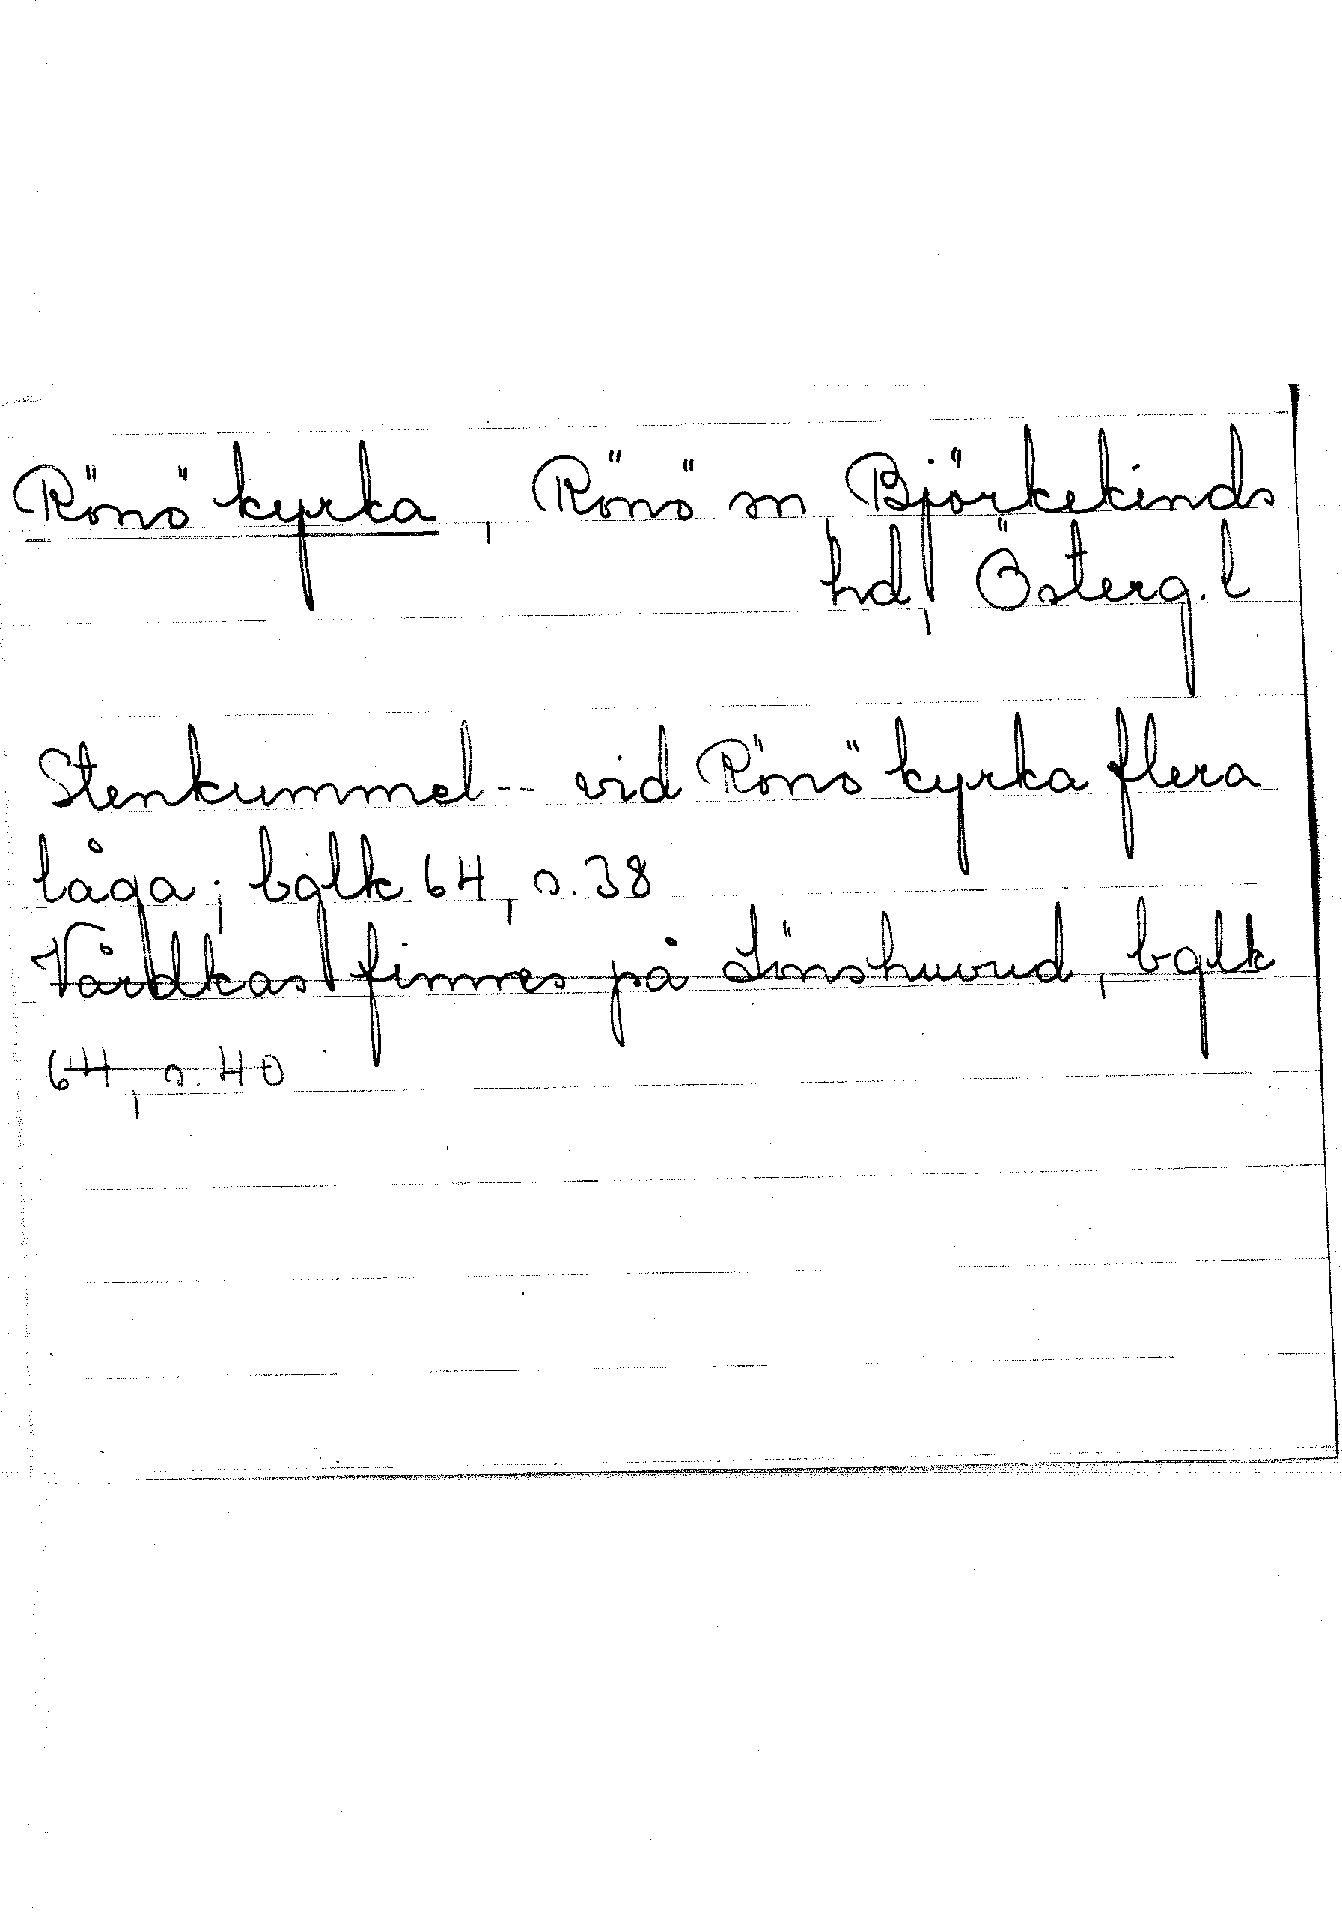 Rönö kyrka, Rönö sn, Björkekinds
hd, Österg. l
Stenkummel -- vid Rönö kyrka flera
låga; bglk 64, s. 38
Vårdkas finnes på Lönshuvud, bglk
64, s. 40